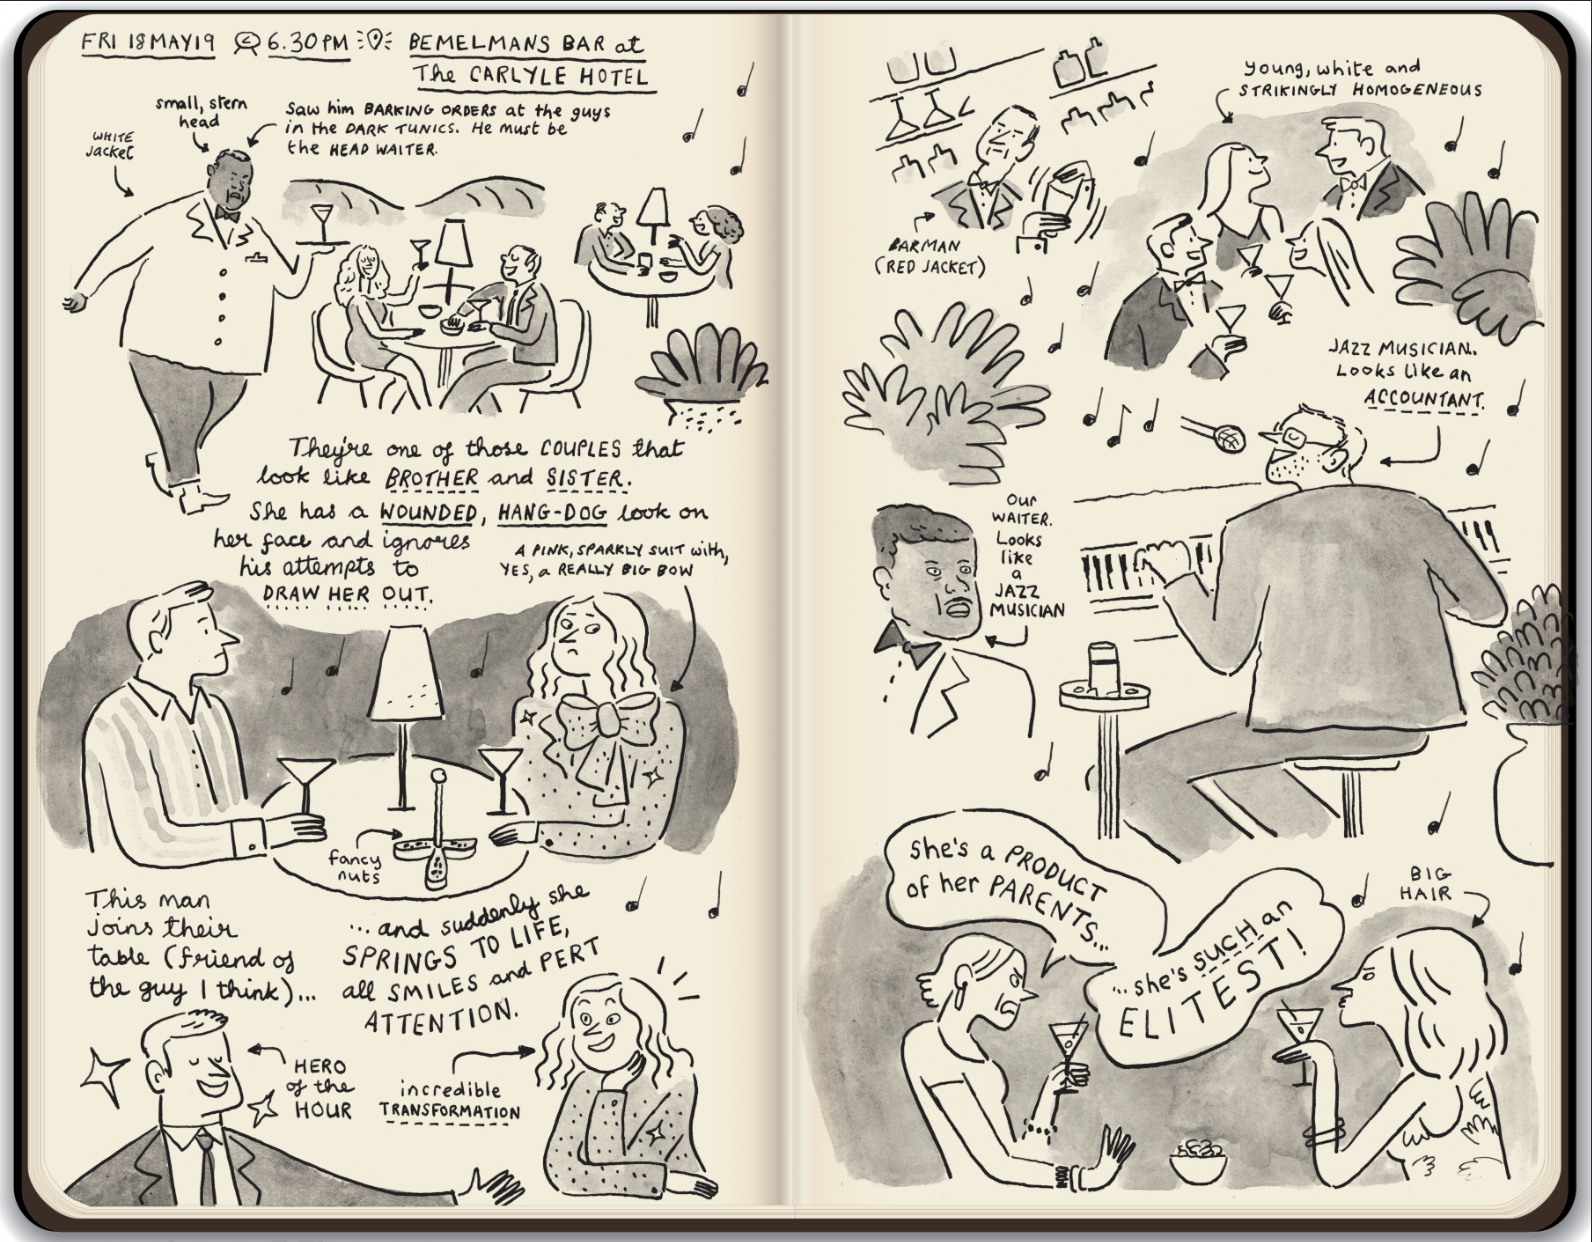 FRI 18 MAY 19 6.30 PM BEMELMANS BAR at
The CARLYLE HOTEL
small, stern
head
WHITE
jacket
Saw him BARKING ORDERS at the guys
in the DARK TUNICS. He must be
the HEAD WAITER.
They're one of those COUPLES that
look like BROTHER and SISTER.
She has a WOUNDED, HANG-DOG look on
her face and ignores
his attempts to
DRAW HER OUT.
A PINK, SPARKLY SUIT with,
YES, a REALLY BIG BOW
fancy
nuts
This man
joins their
table (friend of
the guy I think)...
...and suddenly she
SPRINGS TO LIFE,
all SMILES and PERT
ATTENTION.
HERO
of the
HOUR
incredible
TRANSFORMATION
Young, white and
STRIKINGLY HOMOGENEOUS
BARMAN
(RED JACKET)
JAZZ MUSICIAN.
Looks like an
ACCOUNTANT.
Our
WAITER.
Looks
like
a
JAZZ
MUSICIAN
She's a PRODUCT
of her PARENTS...
...she's SUCH an
ELITEST!
BIG
HAIR